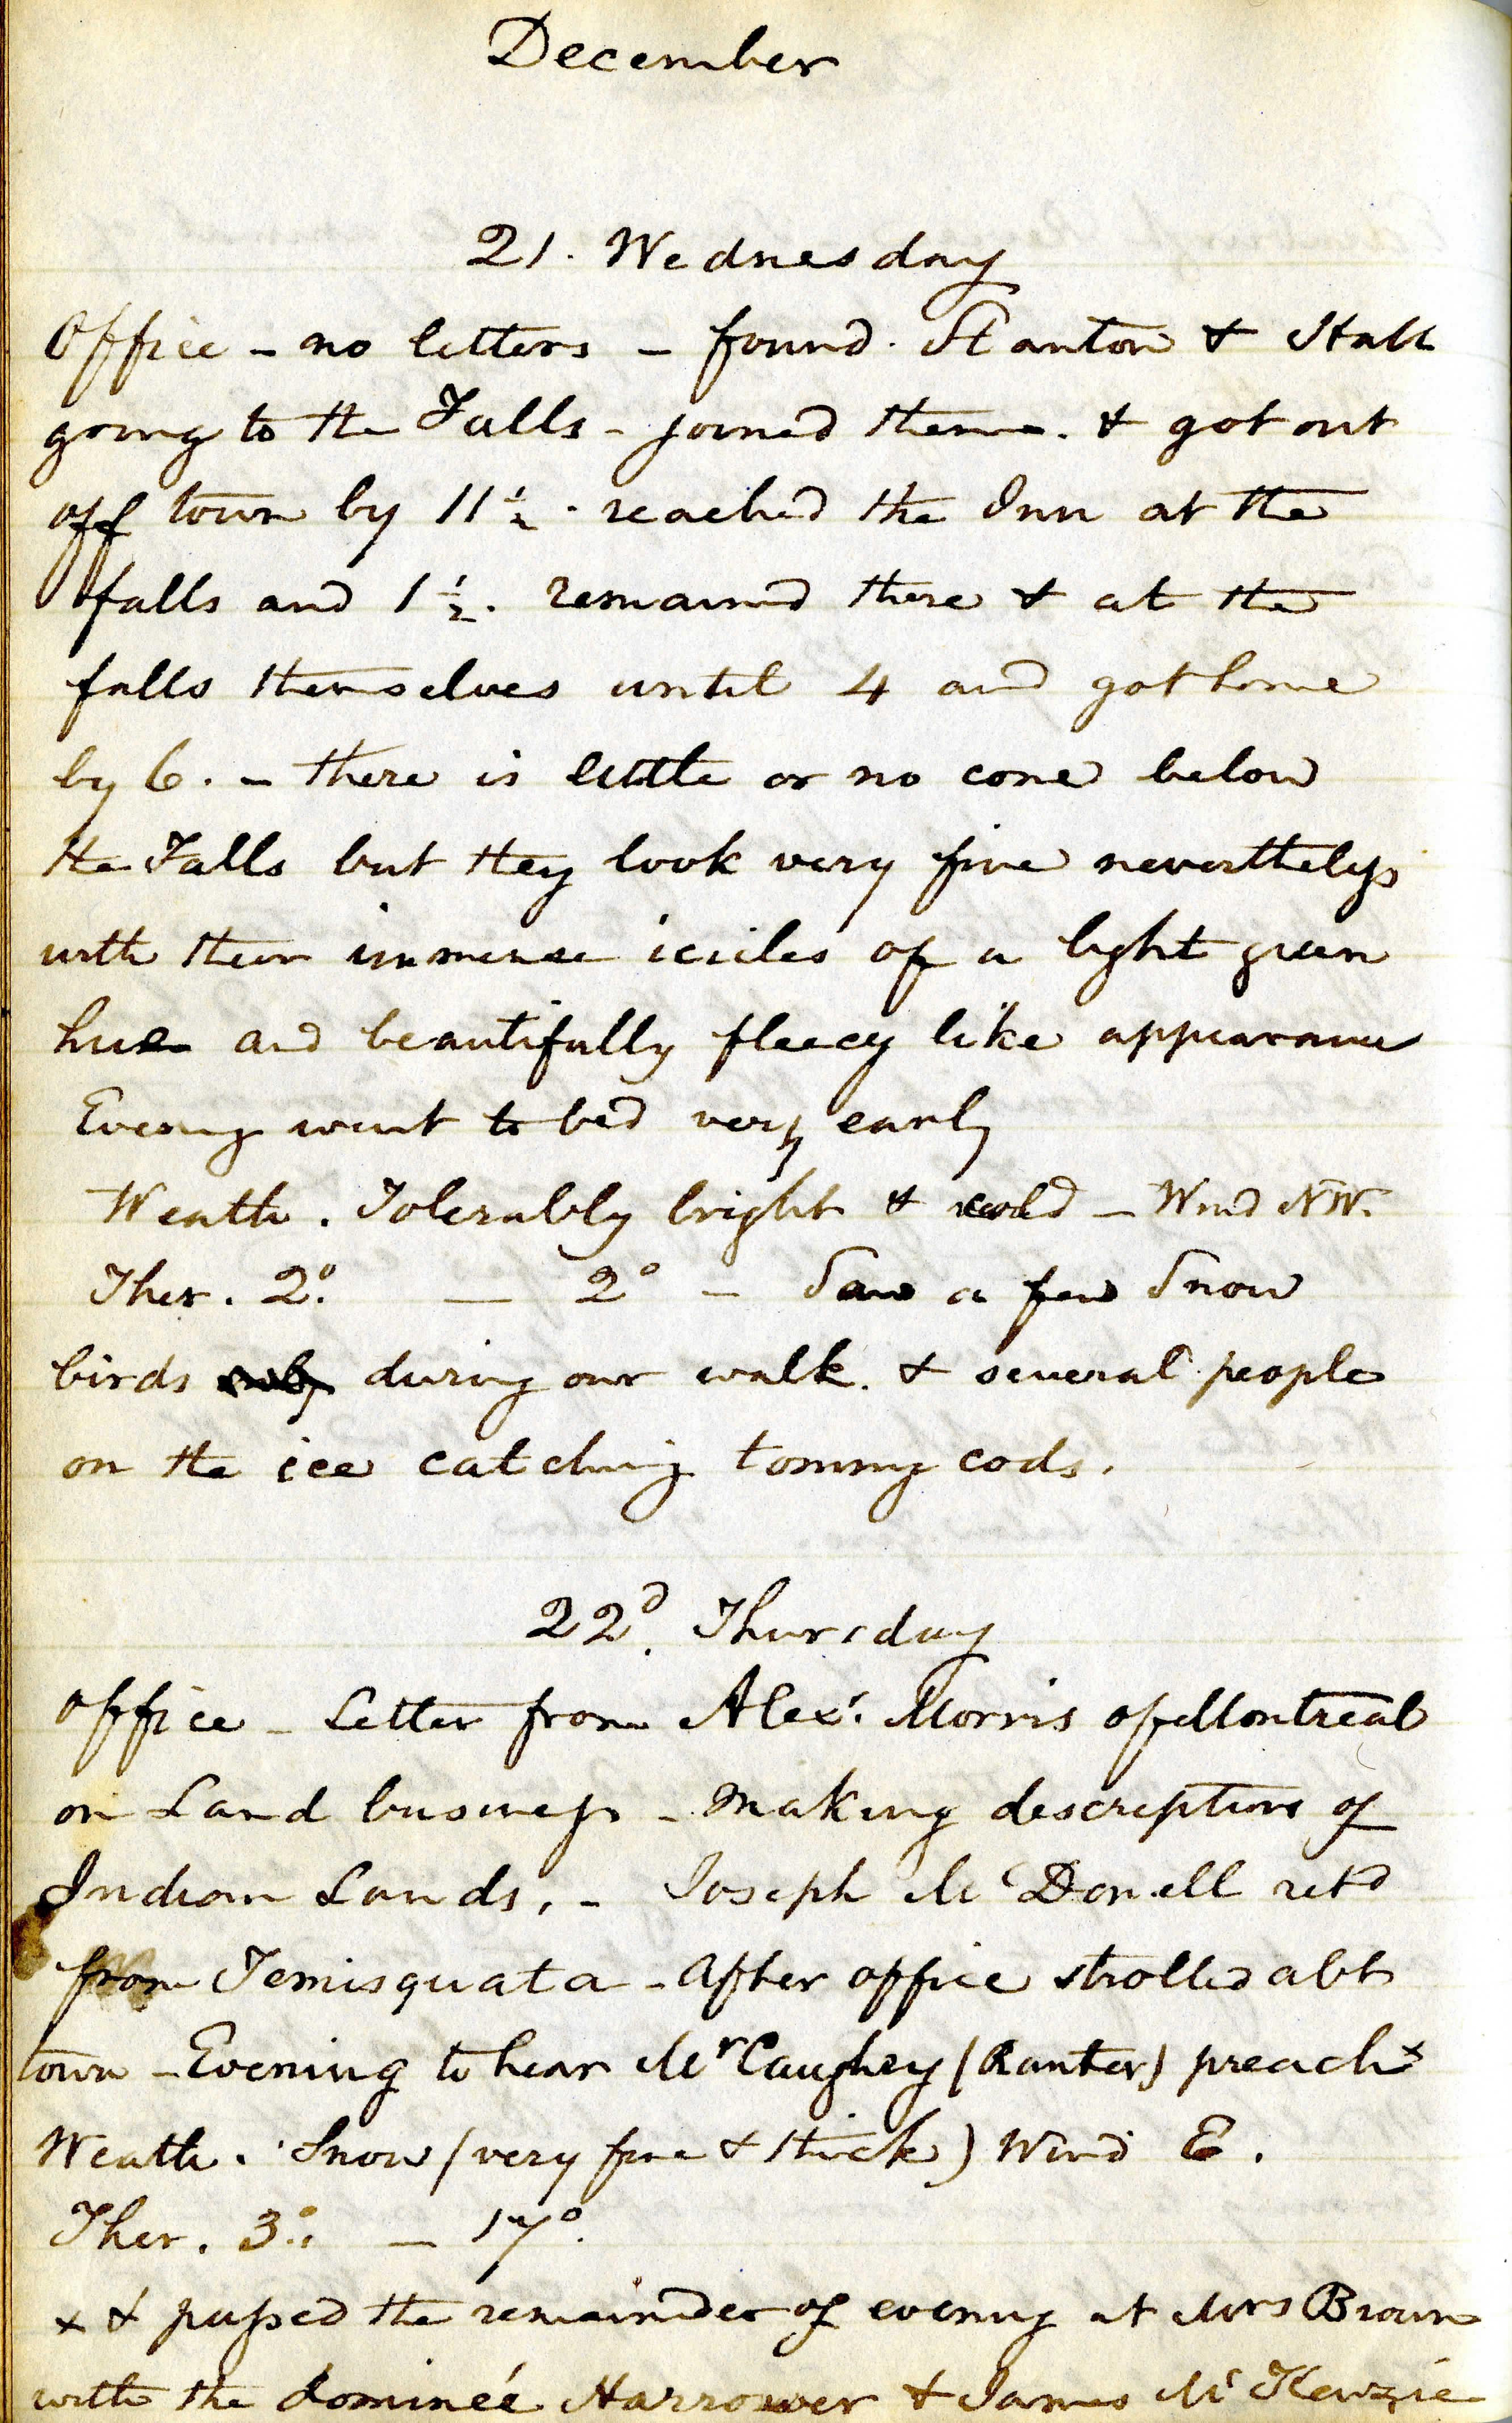 December
21. Wednesday
Office - no letters - found. Stanton & Hall
going to the Falls - joined them. & got out
off town by 11 1/2. reached the Inn at the
falls and 1 1/2. remained there & at the
falls themselves until 4 and got home
by 6. - there is little or no cone below
the Falls but they look very fine nevertheless
with their immense icicles of a light green
hue and beautifully fleecy like appearance
Evening went to bed very early
Weath. Tolerably bright & cold - Wind NW.
Ther. 2°. - 2° - Saw a few Snow
birds during our walk. & several people
on the ice catching tommy cods.
22d. Thursday
Office - Letter from Alexr. Morris of Montreal
on Land business - Making descriptions of
Indian Lands. - Joseph McDonell retd
from Temisquata - After office strolled abt
town - Evening to hear Mr Caughey (Ranter) preach x
Weath. Snow (very fine & thick) Wind E.
Ther. 3°. - 17°.
x & passed the remainder of evening at Mrs Brown
with the dominée Harrower & James McKenzie